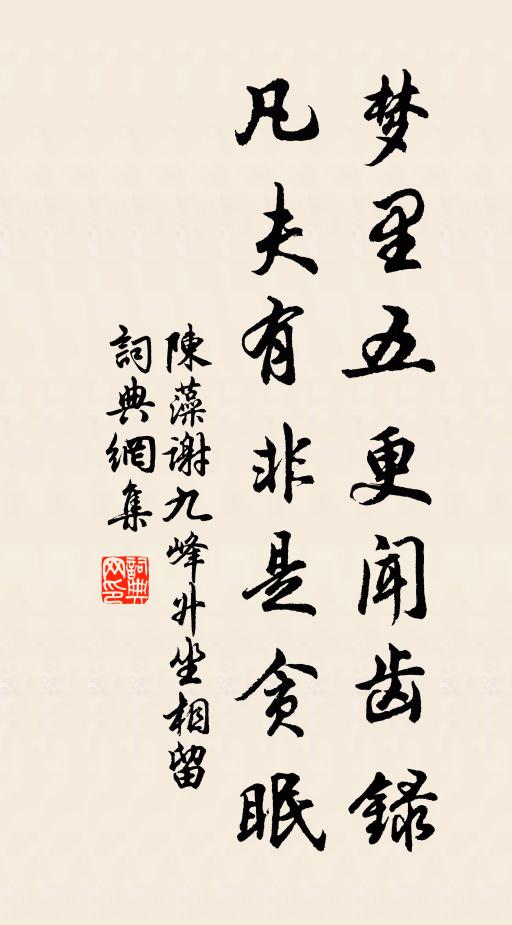 梦里五更闻齿録
凡夫有非是贪眠
陳藻谢九峰升坐相留
詞典網集
詞典网印